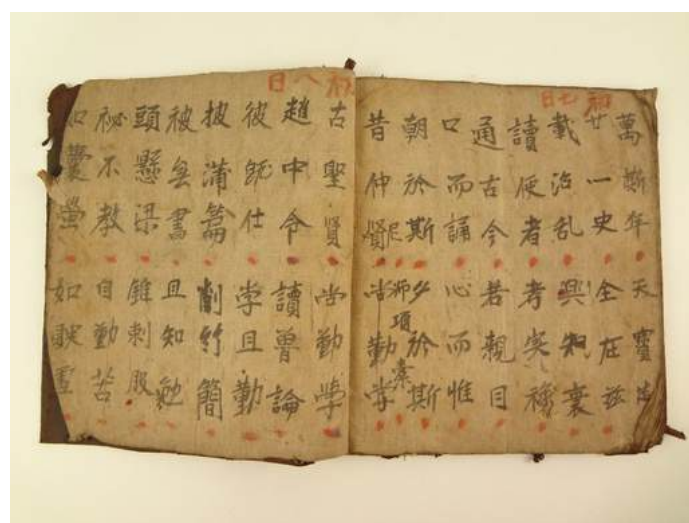 初七日
萬斯年 天寶
廿一史 全在兹
載治乱 興知衰
讀使者 考実
通古今 若親目
口而誦 心而惟
朝於斯 夕於斯
昔仲賢 尚勤学
尼 師項橐
初八日
古聖賢 尚勤学
趙中令 讀魯論
彼既仕 学且勤
披蒲篇 削竹簡
彼無書 且知勉
頭懸梁 錐刺股
祕不教 自勤苦
如囊螢 如映雪